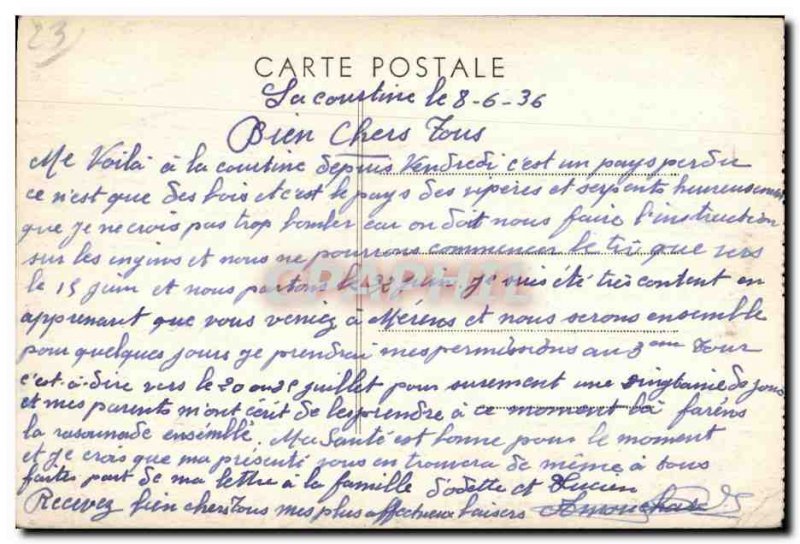 23
CARTE POSTALE
La courtine le 8-6-36
Bien Chers Tous
Me Voilà à la courtine depuis Vendredi c'est un pays perdu
ce n'est que des bois et c'est le pays des vipères et serpents heureusement
que je ne crois pas trop bomber car on doit nous faire l'instruction
sur les engins et nous ne pourrons commencer le tir que vers
le 15 juin et nous partons le juin je suis été très content en
apprenant que vous veniez à Mérens et nous serons ensemble
pour quelques jours je prendrai mes permissions au 3eme Tour
c'est-à-dire vers le 20 ou 25 juillet pour surement une Vingtaine de jours
et mes parents m'ont écrit de les prendre à ce moment là farens
la ensemble. Ma Santé est bonne pour le moment
et je crois que ma présente vous en trouvera de même à tous
faites part de ma lettre à la famille d'odette et Lucien
Recevez bien chers Tous mes plus affectueux baisers